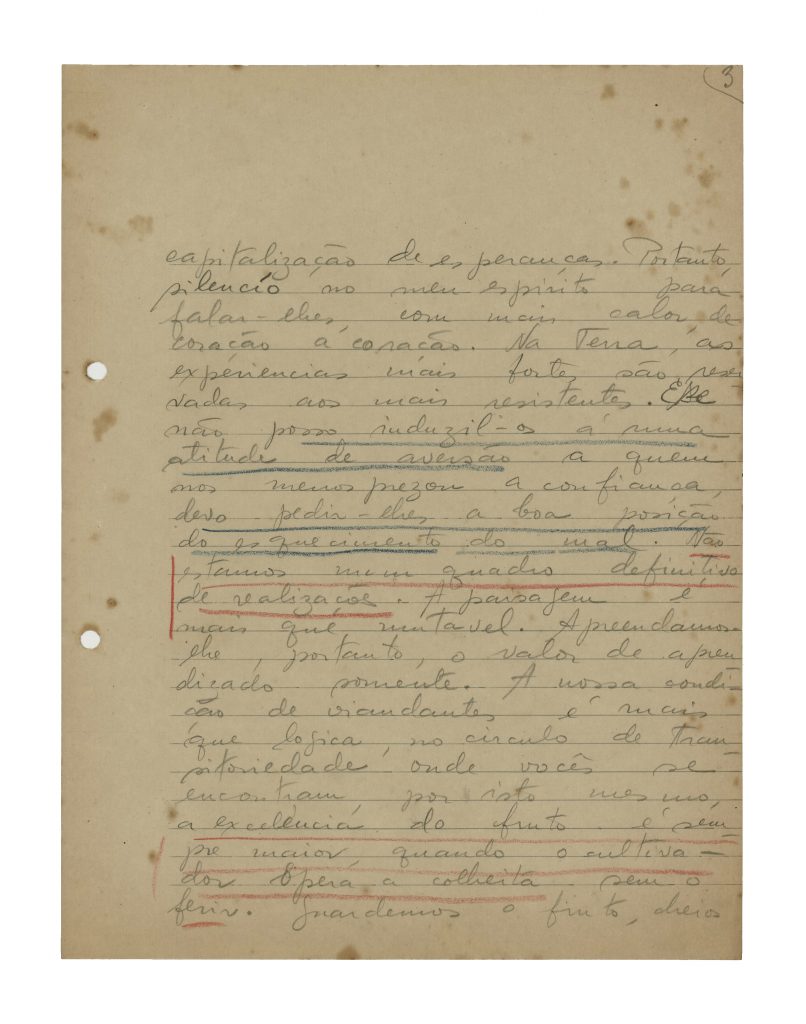 3
capitalização de esperanças. Portanto,
silencío no meu espirito para
falar-lhes com mais calor de
coração a coração. Na Terra, as
experiencias mais fortes são reser
vadas aos mais resistentes. E se
não posso induzil-os á uma
atitude de aversão a quem
nos menosprezou a confiança,
devo pedir-lhes a boa posição
do esquecimento do mal. Não
estamos num quadro definitivo
de realizações. A paisagem é
mais que mutavel. Apreendamos-
lhe, portanto, o valor de apren
dizado somente. A nossa condi-
ção de viandantes é mais
que logica, no circulo de tran-
sitoriedade onde vocês se
encontram, por isto mesmo,
a excelencia do fruto é sem-
pre maior, quando o cultiva-
dor opera a colheita sem o
ferir. Guardemos o fruto, cheios